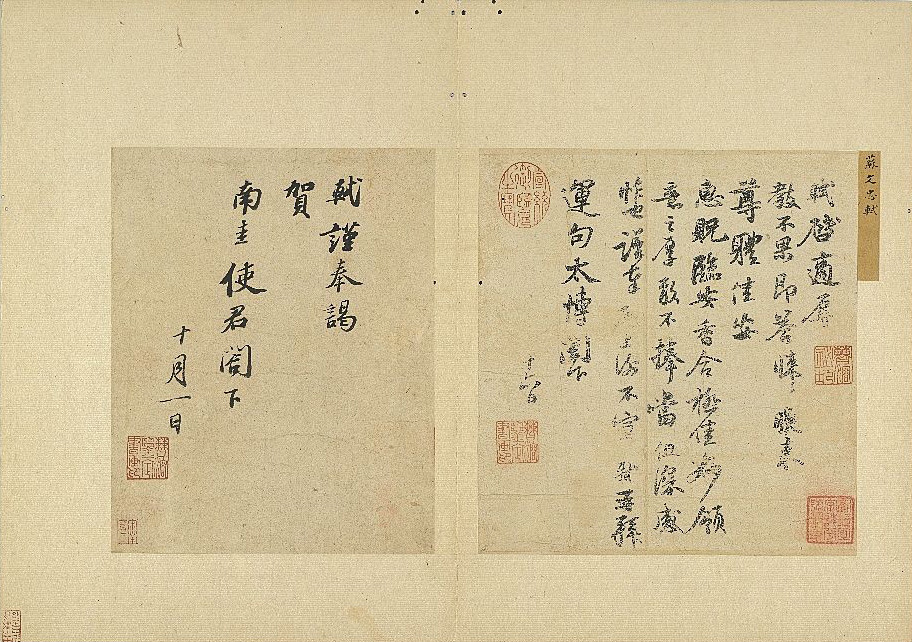 蘇文忠軾
軾啓適辱
教不果即荅悚悚晚來
尊體佳安
惠貺臨安香合極佳妙領
意之厚敢不捧當但深感
怍也謹奉啓上謝不宣軾再拜
運句太博閣下
十六日
軾謹奉謁
賀
南圭使君閣下
十月一日